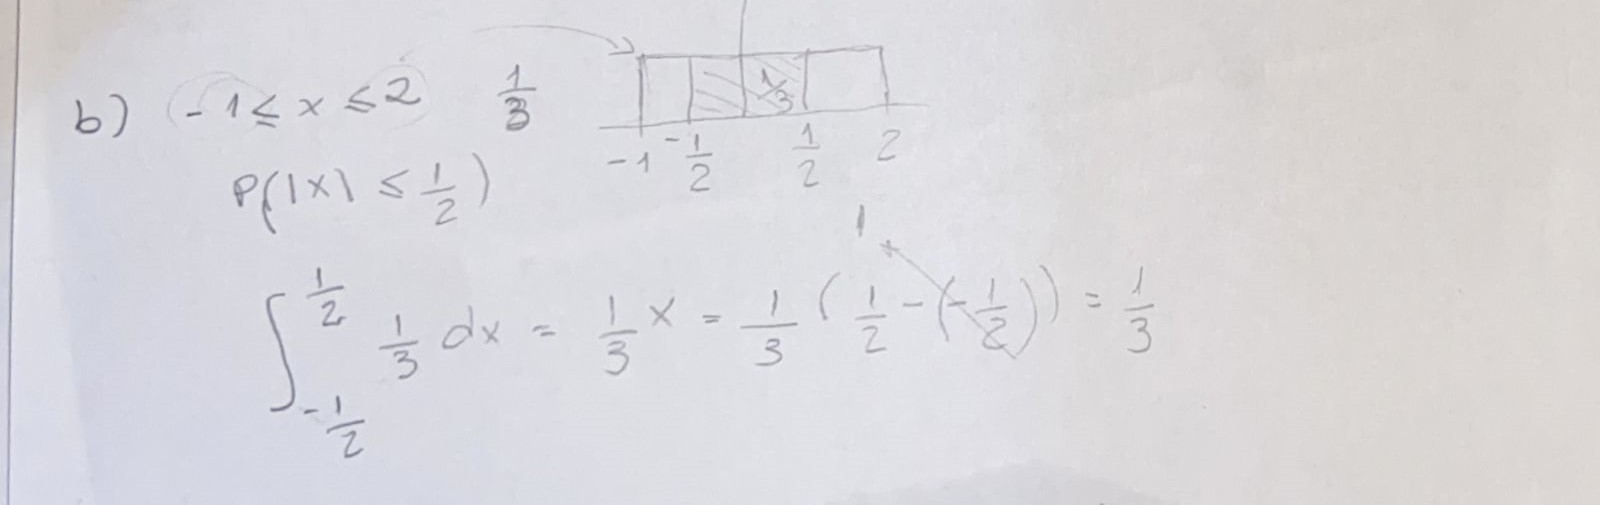 b) -1 ≤ x ≤ 2 1/3
1/3
-1 -1/2 1/2 2
P(|X| ≤ 1/2)
1
∫_{-1/2}^{1/2} 1/3 dx = 1/3 x = 1/3 (1/2 - (-1/2)) = 1/3